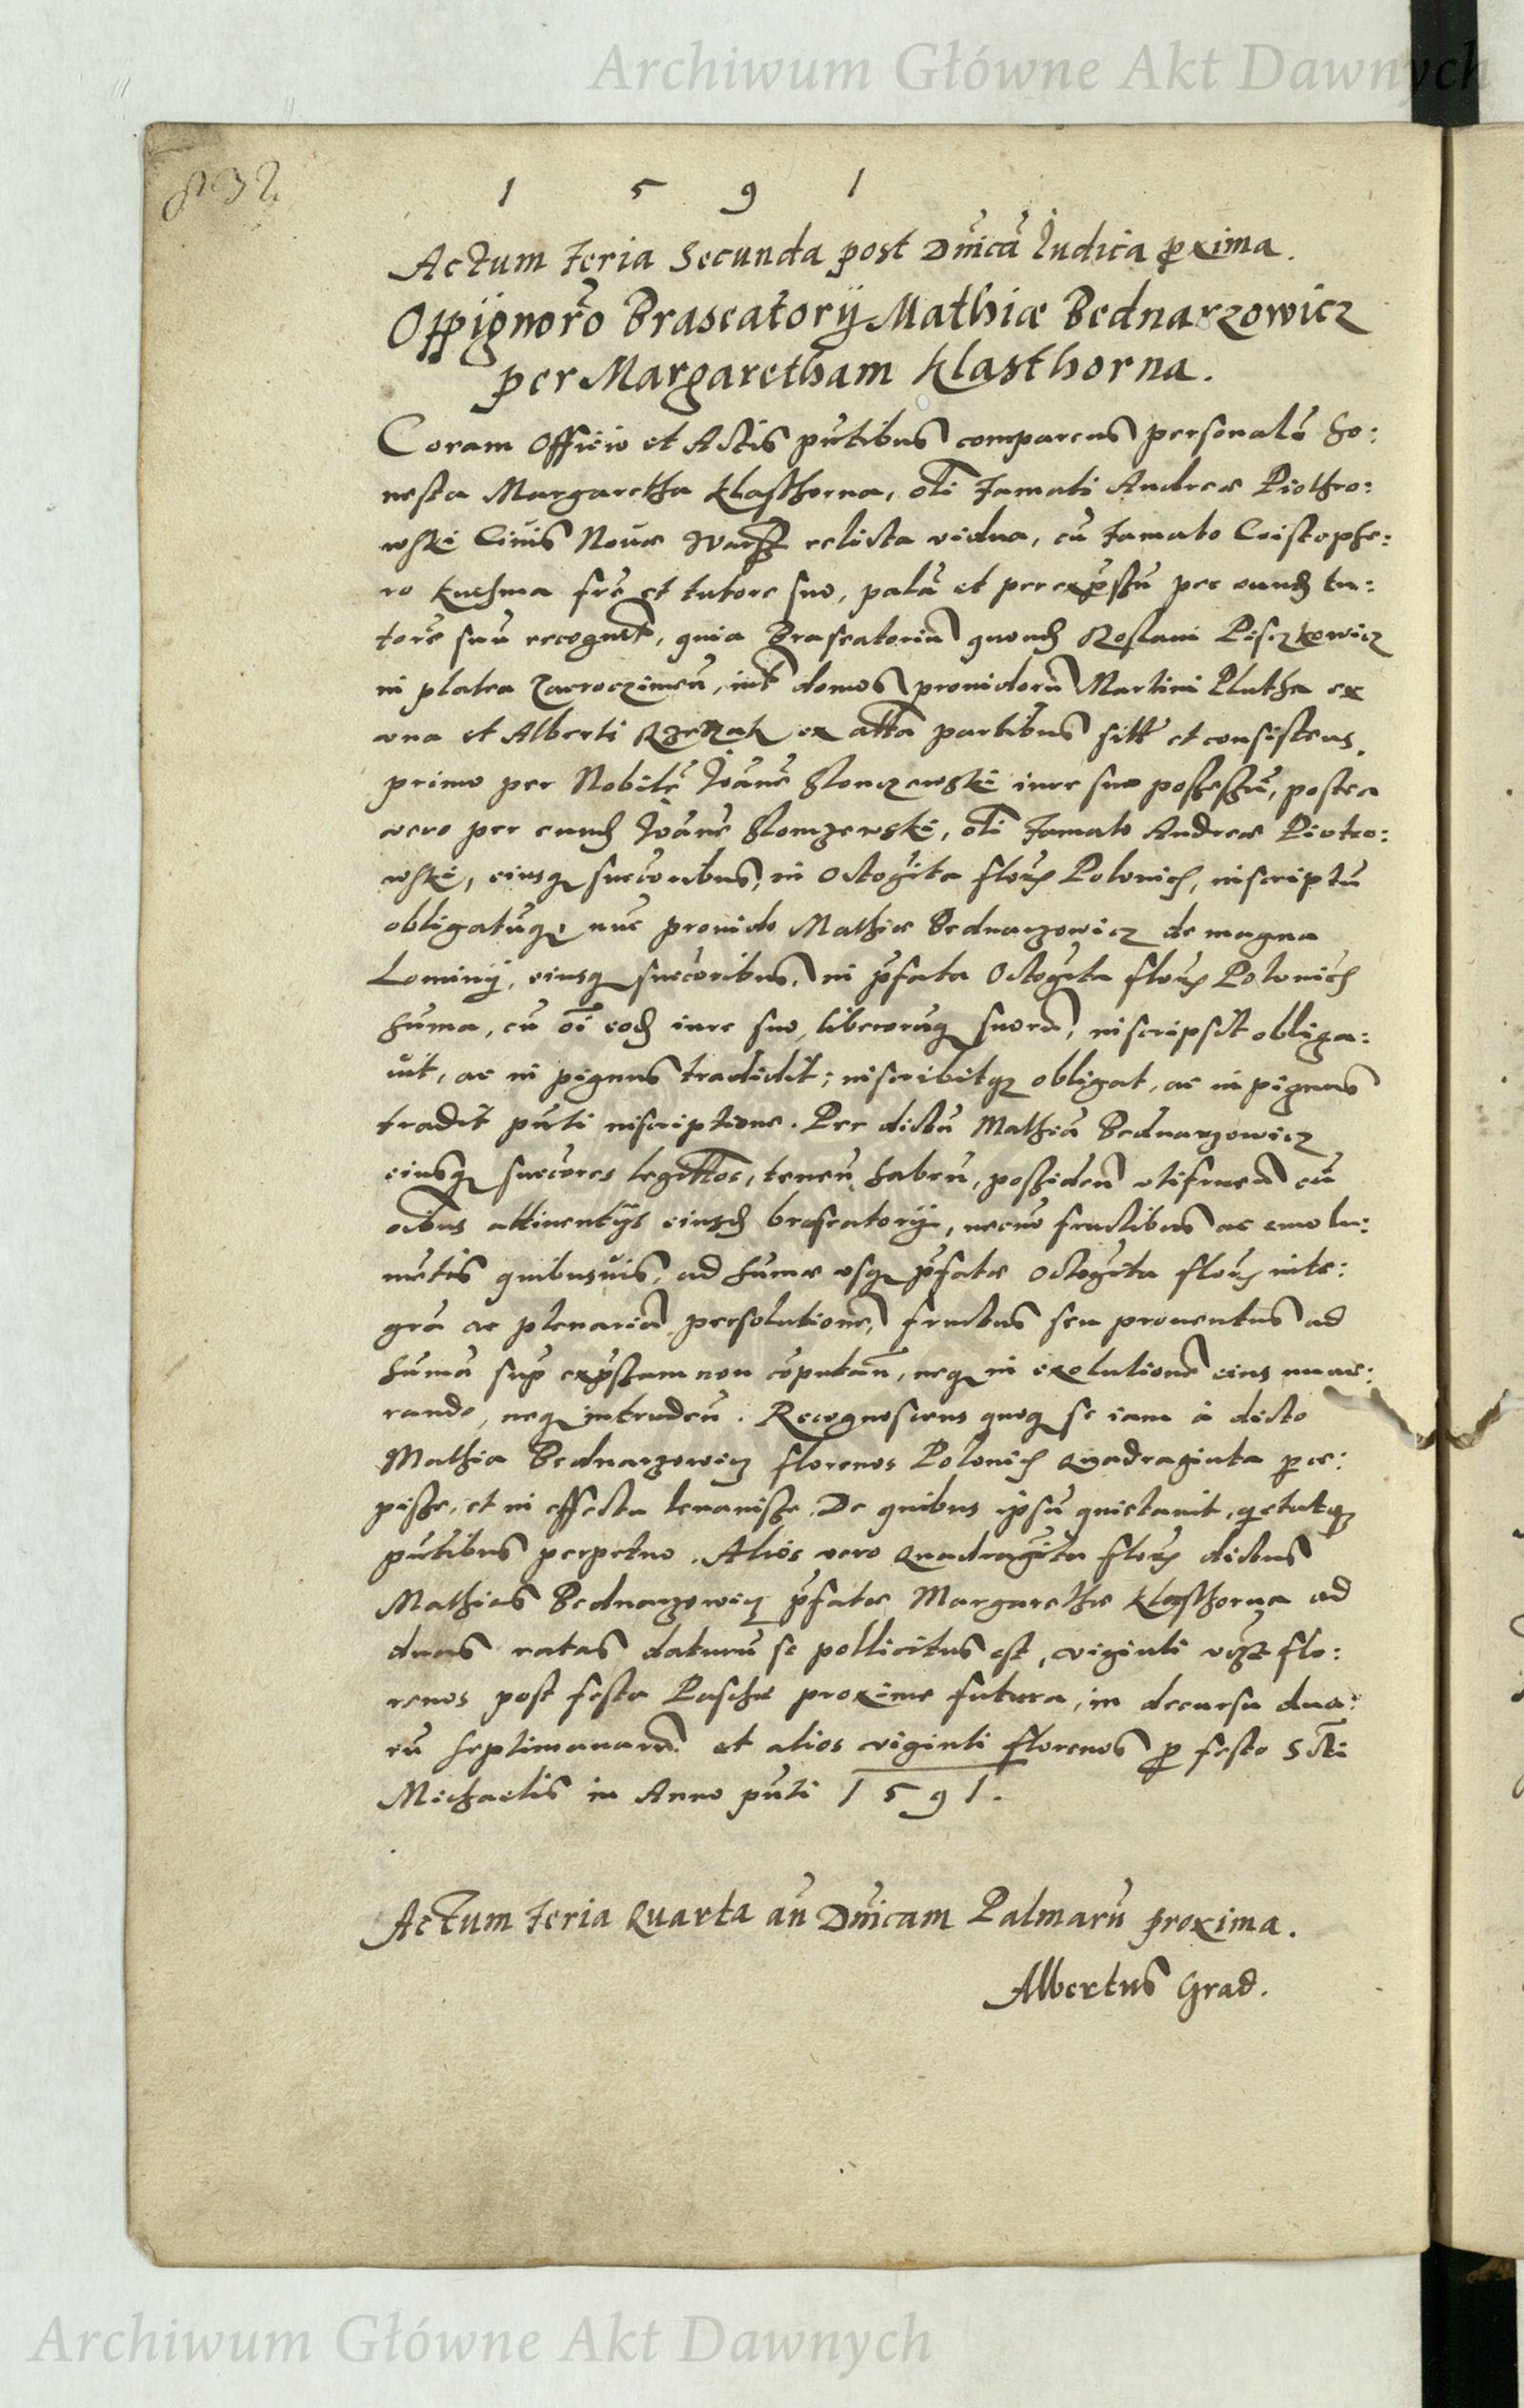 Archiwum Główne Akt Dawnych
832
1 5 9 1
Actum Feria Secunda post Dnicã Iudica pxima.
Oppignorõ Braseatorÿ Mathiæ Bednarzowicz
per Margaretham Klasthorna.
Coram Officio et Actis pntibus comparens personalr ho:
nesta Margaretha Klasthorna, oli Famati Andreæ Piothro:
wski Ciuis Nouæ Warß relicta vidua, cũ Famato Cristophe:
ro Kuchma fre et tutore suo, palã et per expßũ per eund tu:
torẽ suũ recognt, quia Braseatoriũ quond Piszkowicz
in platea Zacroczimeñ, int domos prouidorũ Martini Plutha ex
vna et Alberti ex alta partibus sitũ et consistens,
primo per Nobilẽ Ioanẽ iure suo poßeßũ, postea
vero per eund Ioanẽ oli Famato Andreæ Piotro:
wski, eiusq succoribus, in Octogita flor Polonich, inscriptũ
obligatũq, nuc prouido Mathiæ Bednarzowicz de magna
Lominÿ, eiusq succoribus, in pfata Octogita flor Polonich
suma, cũ oi eod iure suo, liberorũq suorũ, inscripsit obliga:
uit, ac in pignus tradidit; inscribitq obligat, ac in pignus
tradit pnti inscriptione. Per dictũ Mathiã Bednarzowicz
eiusq succores legitos, teneñ, habeñ, poßideñ vtifrueñ cũ
oibus attinentÿs eiusd braseatorÿ, necnõ fructibus ac emolu:
mẽtis quibusuis, ad sumæ vsq pfatæ Octogita flor inte:
grã ac plenariã persolutionẽ, fructus seu prouentus ad
sumã sup expßam non coputañ, neq in exolutionẽ eius nume:
rando, neq intrudeñ. Recognoscens quoq se iam à dicto
Mathia Bednarzowicz florenos Polonich Quadraginta perce:
piße, et in effectu leuaniße. De quibus ipsũ quietauit, quietatq
pntibus perpetuo. Alios vero Quadragita flor dictus
Mathias Bednarzowicz pfatæ Margarethæ Klasthorna ad
duas ratas daturũ se pollicitus est, viginti flo:
renos post festa Paschæ proxime futura, in decursu dua:
rũ septimanarũ et alios viginti florenos p festo Scti
Michaelis in Anno pnti 1591.
Actum Feria Quarta añ Dnicam Palmarũ proxima.
Albertus Grad.
Archiwum Główne Akt Dawnych